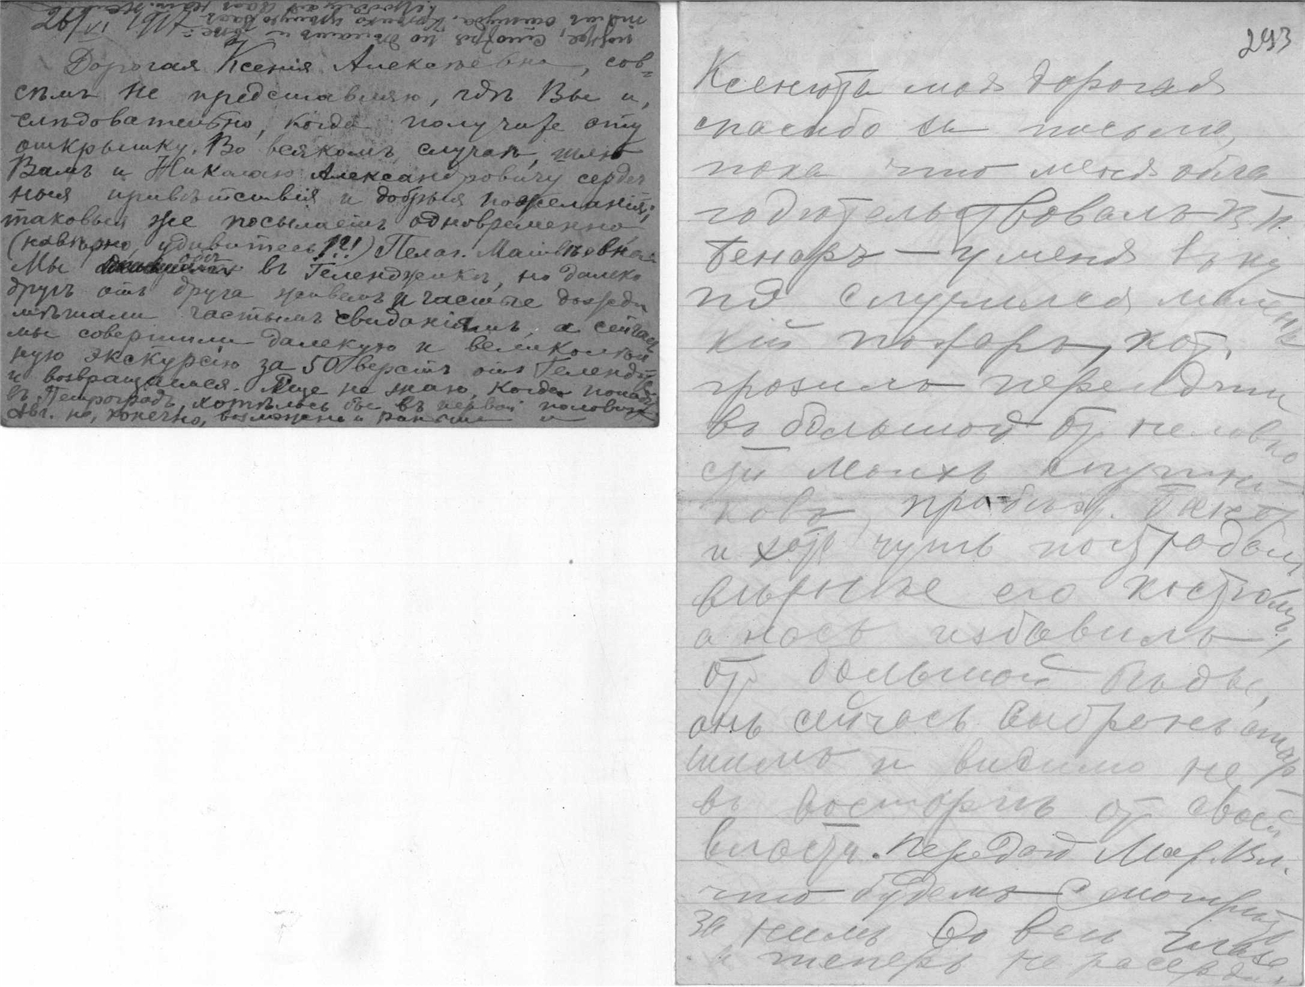 26/VI 1917
Дорогая Ксенія Алексѣевна, сов=
сѣмъ не представляю, гдѣ Вы и,
слѣдовательно, когда получите эту
открытку. Во всякомъ случаѣ, шлю
Вамъ и Николаю Александровичу сердеч
ныя привѣтствія и добрыя пожеланія;
таковыя же посылаетъ одновременно
(навѣрно удивитесь!?!) Пелаг. Матвѣевна
Мы въ Геленджикѣ, но далеко
другъ отъ друга живемъ и частые дожди
мѣшали частымъ свиданіямъ, а сейчас
мы совершили далекую и великолѣп
ную экскурсію за 50 верстъ отъ Геленд
и возвращаемся. Еще не знаю, когда попаду
въ Петроградъ, хотѣлось бы въ первой половинѣ
авг. но, конечно, возможно и раньше и
позже, смотря по дѣламъ и
293
Ксенютъ моя дорогая
спасибо за письмо,
пока что меня обла
годѣтельствовалъ В. П.
Бенаръ — у меня въ ку
пэ случился малень
кій пожаръ, кот.
грозилъ перейдти
въ большой от неловко
сти моихъ спутни
ковъ, прибѣж. Бенар
и хотя чуть пострадалъ
вѣрнѣе его костюмъ,
а насъ избавилъ
от большой бѣды,
онъ сейчасъ выбранъ стар
шимъ и видимо не
въ восторгѣ от своей
власти. Передай Мар. Вл.
что будемъ смотрѣть
за нимъ во всѣ глаза
и теперь не расердит.